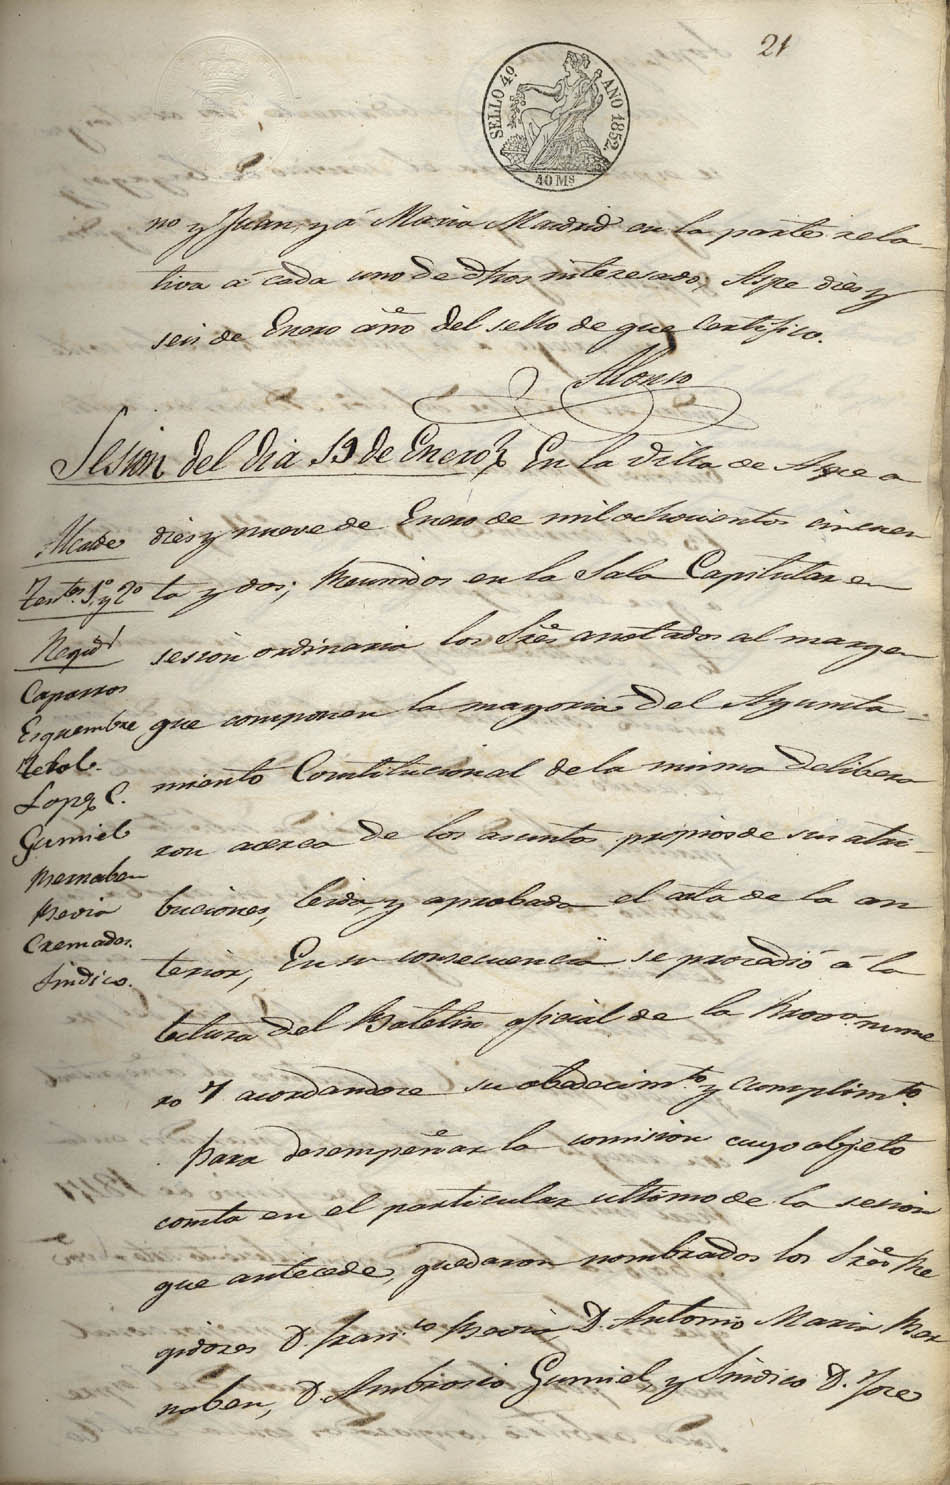 21
SELLO 4º AÑO 1852
40 Ms
no y Juan, y á Maria Madrid en la parte rela-
tiva á cada uno de dhos interesados, Aspe dies y
seis de Enero año del sello de que Certifico.
Alonso
Sesion del dia 19 de Enero En la Villa de Aspe a
dies y nueve de Enero de mil ochocientos cincuen
ta y dos; Reunidos en la Sala Capitular en
sesion ordinaria los Sres anotados al margen
que componen la mayoria del Ayunta-
miento Constitucional de la misma delibera
ron acerca de los asuntos propios de sus atri-
buciones, leida y aprobada el acta de la an
terior, En su consecuencia se procedió á la
lectura del Boletin oficial de la Prova nume
ro 7 acordandose su obedecimto y cumplimto.
Para desempeñar la comision cuyo objeto
consta en el particular ultimo de la sesion
que antecede, quedaron nombrados los Sres Re
gidores D. Franco Bevia, D. Antonio Maria Ber
nabeu, D. Ambrosio Gumiel, y Sindico D. Jose
Alcalde
Tentes 1º y 2º
Regid
Caparros
Esquembre
Lopez C.
Gumiel
Bernabeu
Bevia
Cremades.
Sindico.